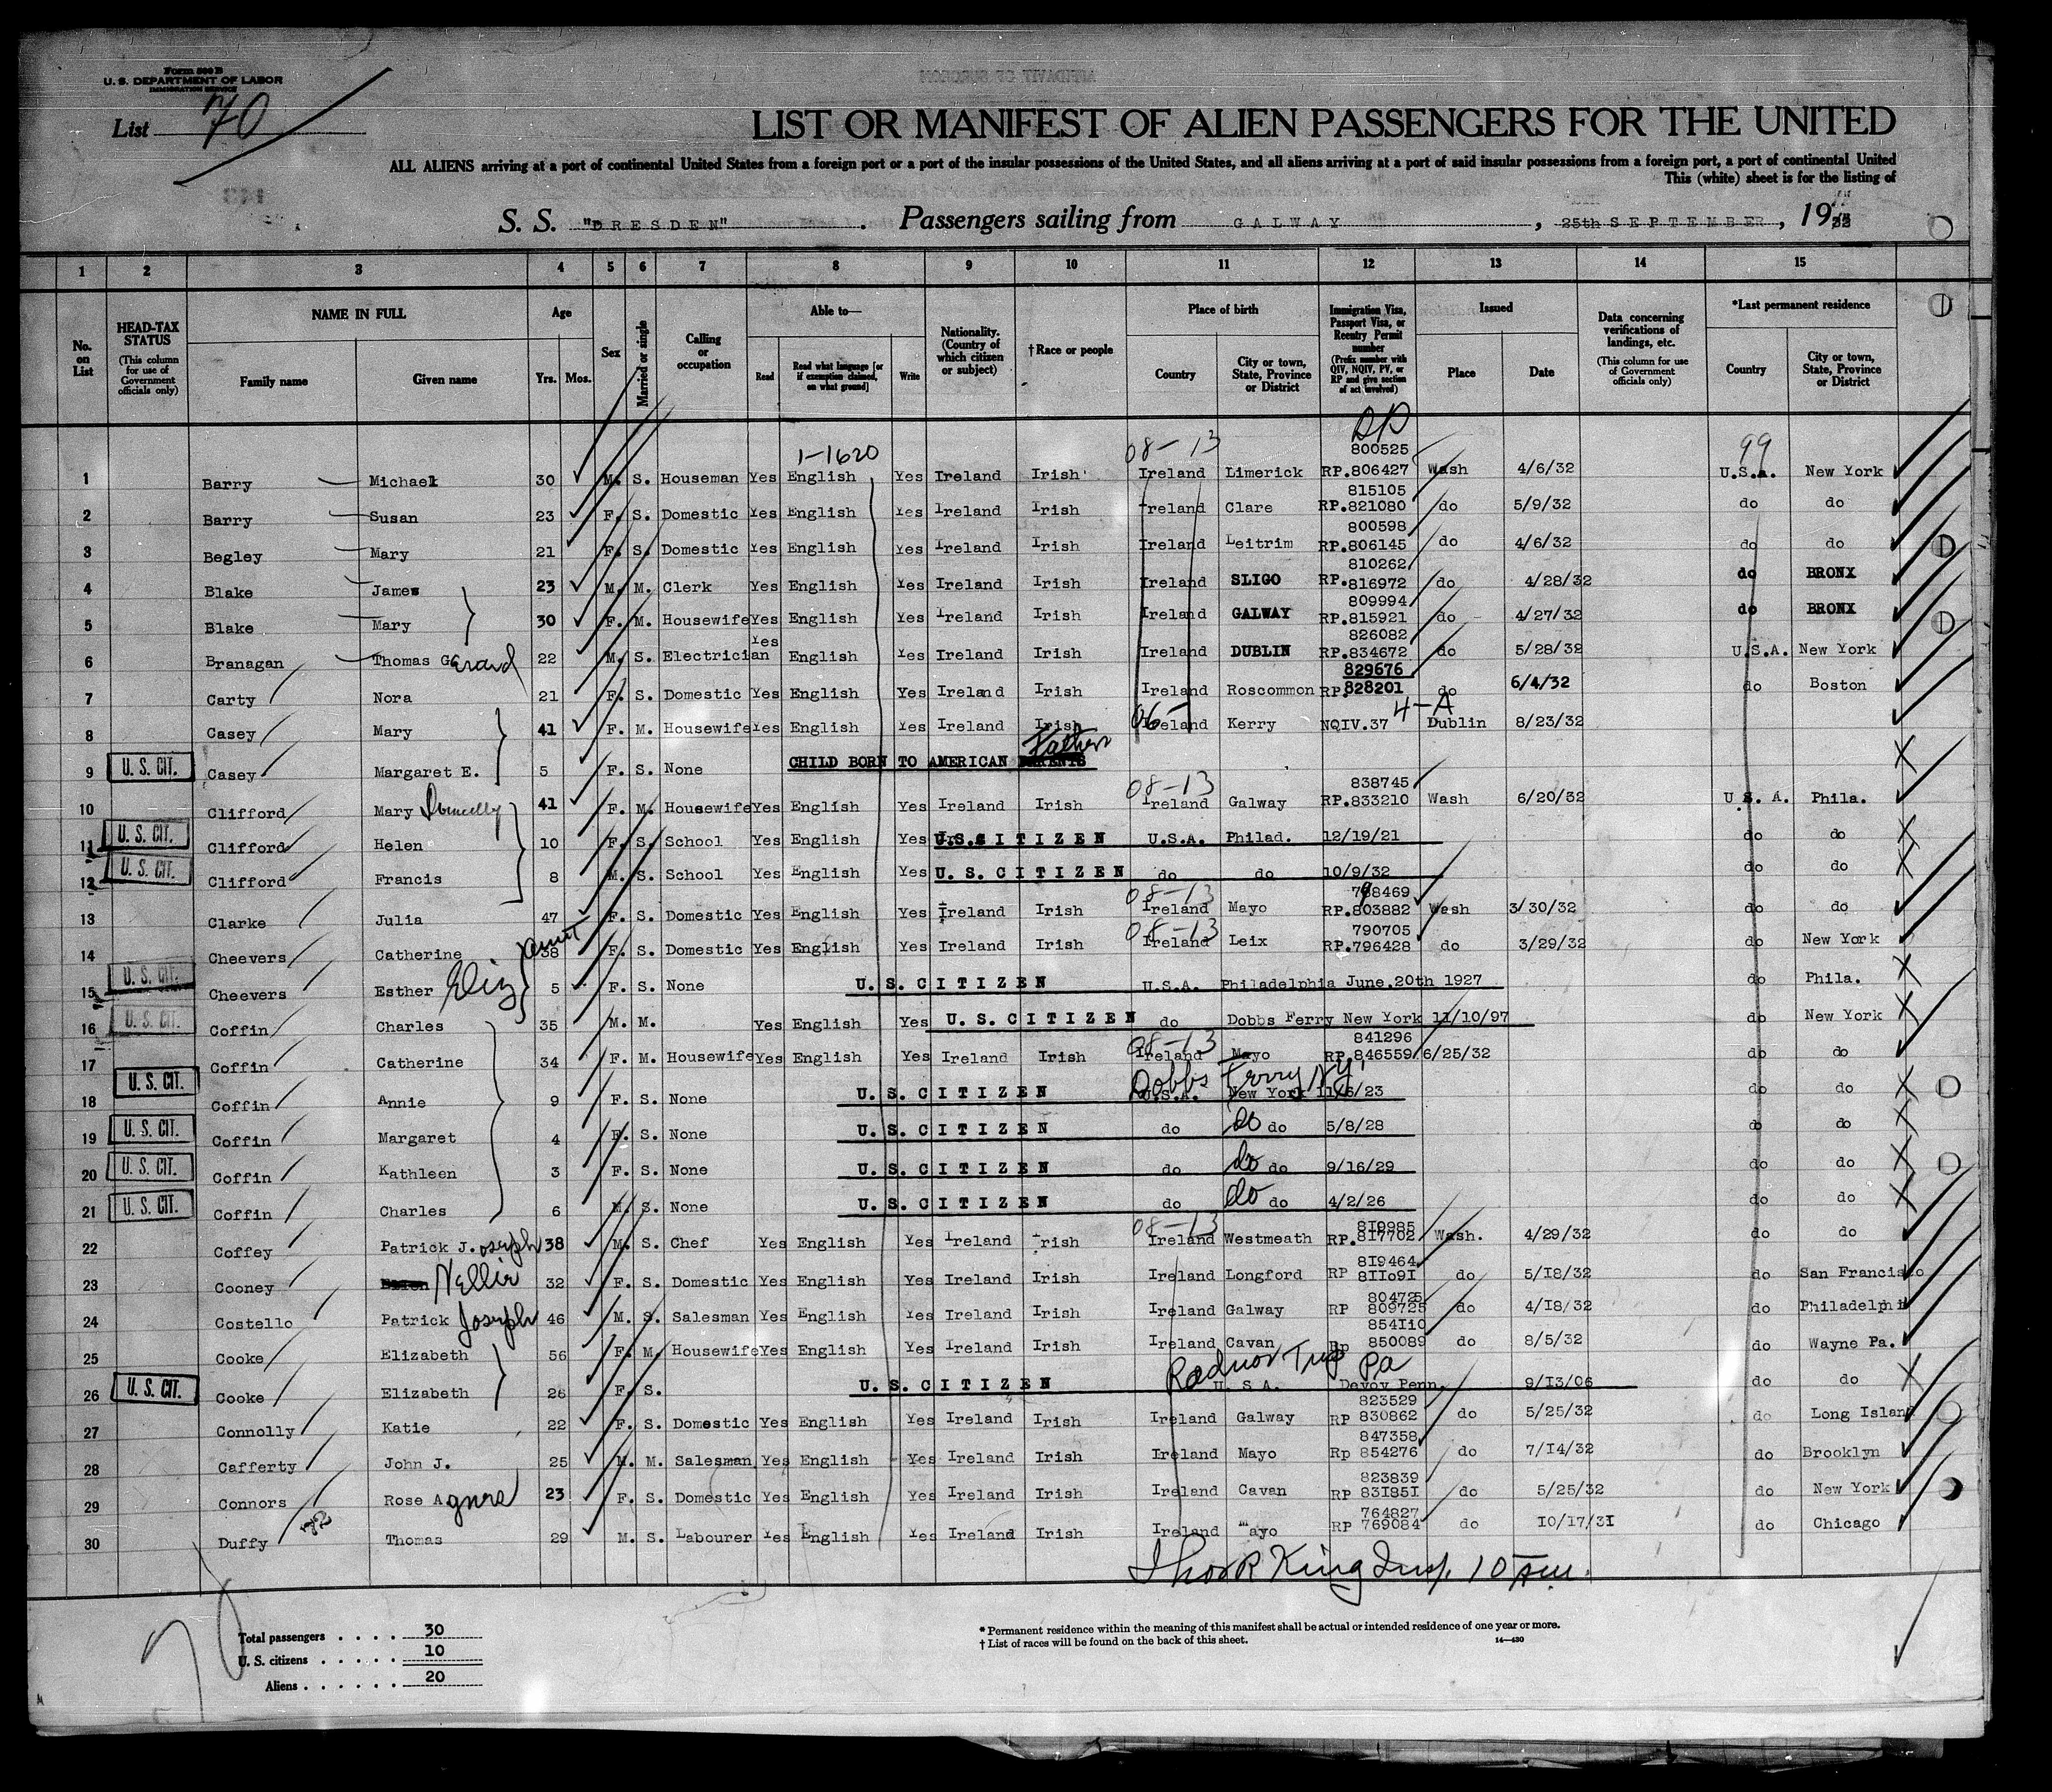 Form 500 B
U. S. DEPARTMENT OF LABOR
IMMIGRATION SERVICE
List 70
LIST OR MANIFEST OF ALIEN PASSENGERS FOR THE UNITED
ALL ALIENS arriving at a port of continental United States from a foreign port or a port of the insular possessions of the United States, and all aliens arriving at a port of said insular possessions from a foreign port, a port of continental United
This (white) sheet is for the listing of
S. S. "DRESDEN". Passengers sailing from GALWAY, 25th SEPTEMBER, 1932
1 2 3 4 5 6 7 8 9 10 11 12 13 14 15
No. on List
HEAD-TAX STATUS (This column for use of Government officials only)
NAME IN FULL Family name Given name
Age Yrs. Mos.
Sex
Married or single
Calling or occupation
Able to— Read Read what language [or if exemption claimed, on what ground] Write
Nationality. (Country of which citizen or subject)
†Race or people
Place of birth Country City or town, State, Province or District
Immigration Visa, Passport Visa, or Reentry Permit number (Prefix number with QIV, NQIV, PV, or RP and give section of act involved)
Issued Place Date
Data concerning verifications of landings, etc. (This column for use of Government officials only)
*Last permanent residence Country City or town, State, Province or District
1-1620 08-13 800525 99
1 Barry Michael 30 M. S. Houseman Yes English Yes Ireland Irish Ireland Limerick RP.806427 Wash 4/6/32 U.S.A. New York
815105
2 Barry Susan 23 F. S. Domestic Yes English Yes Ireland Irish Ireland Clare RP.821080 do 5/9/32 do do
800598
3 Begley Mary 21 F. S. Domestic Yes English Yes Ireland Irish Ireland Leitrim RP.806145 do 4/6/32 do do
810262
4 Blake James 23 M. M. Clerk Yes English Yes Ireland Irish Ireland SLIGO RP.816972 do 4/28/32 do BRONX
809994
5 Blake Mary 30 F. M. Housewife Yes English Yes Ireland Irish Ireland GALWAY RP.815921 do 4/27/32 do BRONX
826082
6 Branagan Thomas Gerard 22 M. S. Electrician Yes English Yes Ireland Irish Ireland DUBLIN RP.834672 do 5/28/32 U.S.A. New York
829676
7 Carty Nora 21 F. S. Domestic Yes English Yes Ireland Irish Ireland Roscommon RP.828201 do 6/4/32 do Boston
06- 4-A
8 Casey Mary 41 F. M. Housewife Yes English Yes Ireland Irish Ireland Kerry NQIV.37 Dublin 8/23/32
9 U. S. CIT. Casey Margaret E. 5 F. S. None CHILD BORN TO AMERICAN Father
08-13 838745
10 Clifford Mary Donnelly 41 F. M. Housewife Yes English Yes Ireland Irish Ireland Galway RP.833210 Wash 6/20/32 U.S.A. Phila.
11 U. S. CIT. Clifford Helen 10 F. S. School Yes English Yes U.S. CITIZEN U.S.A. Philad. 12/19/21 do do
12 U. S. CIT. Clifford Francis 8 M. S. School Yes English Yes U.S. CITIZEN do do 10/9/32 do do
08-13 798469
13 Clarke Julia 47 F. S. Domestic Yes English Yes Ireland Irish Ireland Mayo RP.803882 Wash 3/30/32 do do
aunt 08-13 790705
14 Cheevers Catherine 38 F. S. Domestic Yes English Yes Ireland Irish Ireland Leix RP.796428 do 3/29/32 do New York
15 U. S. CIT. Cheevers Esther Eliz 5 F. S. None U.S. CITIZEN U.S.A. Philadelphia June.20th 1927 do Phila.
16 U. S. CIT. Coffin Charles 35 M. M. Yes English Yes U.S. CITIZEN do Dobbs Ferry New York 11/10/97 do New York
08-13 841296
17 Coffin Catherine 34 F. M. Housewife Yes English Yes Ireland Irish Ireland Mayo RP.846559 6/25/32 do do
Dobbs Ferry NY
18 U. S. CIT. Coffin Annie 9 F. S. None U.S. CITIZEN U.S.A. New York 11/6/23 do do
19 U. S. CIT. Coffin Margaret 4 F. S. None U.S. CITIZEN do do do 5/8/28 do do
20 U. S. CIT. Coffin Kathleen 3 F. S. None U.S. CITIZEN do do do 9/16/29 do do
21 U. S. CIT. Coffin Charles 6 M. S. None U.S. CITIZEN do do do 4/2/26 do do
08-13 819985
22 Coffey Patrick J.oseph 38 M. S. Chef Yes English Yes Ireland Irish Ireland Westmeath RP.817702 Wash. 4/29/32 do do
819464
23 Cooney Nellie 32 F. S. Domestic Yes English Yes Ireland Irish Ireland Longford RP 811091 do 5/18/32 do San Francisco
804725
24 Costello Patrick Joseph 46 M. S. Salesman Yes English Yes Ireland Irish Ireland Galway RP 809725 do 4/18/32 do Philadelphi
854110
25 Cooke Elizabeth 56 F. M. Housewife Yes English Yes Ireland Irish Ireland Cavan Rp 850089 do 8/5/32 do Wayne Pa.
Radnor Twp Pa
26 U. S. CIT. Cooke Elizabeth 26 F. S. U.S. CITIZEN U.S.A. Devoy Penn. 9/13/06 do do
823529
27 Connolly Katie 22 F. S. Domestic Yes English Yes Ireland Irish Ireland Galway RP 830862 do 5/25/32 do Long Island
847358
28 Cafferty John J. 25 M. M. Salesman Yes English Yes Ireland Irish Ireland Mayo Rp 854276 do 7/14/32 do Brooklyn
823839
29 Connors Rose Agnes 23 F. S. Domestic Yes English Yes Ireland Irish Ireland Cavan RP 831851 do 5/25/32 do New York
764827
30 Duffy Thomas 29 M. S. Labourer Yes English Yes Ireland Irish Ireland Mayo RP 769084 do 10/17/31 do Chicago
King Insp. 10 am.
70
Total passengers . . . . 30
U. S. citizens . . . . . 10
Aliens . . . . . . 20
* Permanent residence within the meaning of this manifest shall be actual or intended residence of one year or more.
† List of races will be found on the back of this sheet. 14—430